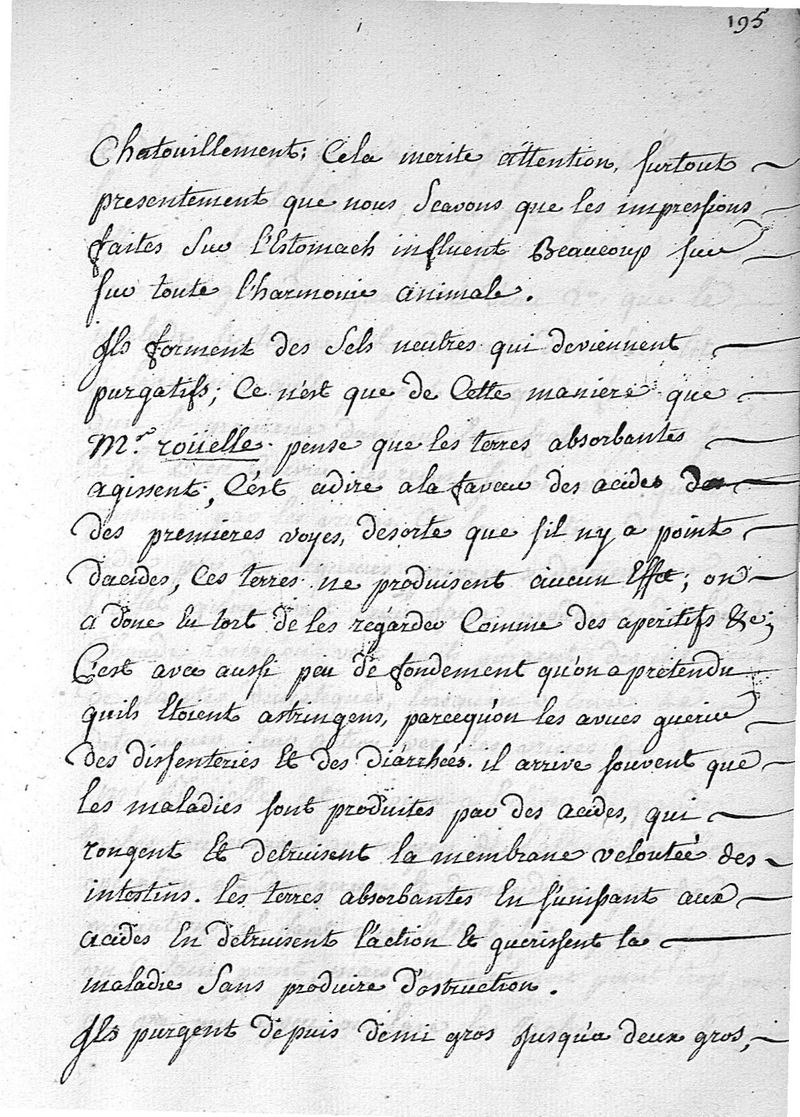 195
Chatouillement; Cela merite attention, surtout
presentement que nous Scavons que les impressions
faites Sur l'Estomach influent Beaucoup sur
sur toute l'harmonie animale.
Ils forment des Sels neutres qui deviennent
purgatifs; Ce n'est que de Cette maniere que
Mr. roüelle pense que les terres absorbantes
agissent, C'est adire ala faveur des acides
des premieres voyes, desorte que s'il ny a point
dacides, Ces terres ne produisent aucun Effet; on
a donc Eu tort de les regarder Comme des aperitifs &c;
C'est avec aussi peu de fondement qu'on a pretendu
quils Etoient astringens, parcequ'on les avues guerir
des dissenteries Et des diarrheés. il arrive souvent que
les maladies sont produites par des acides, qui
rongent Et detruisent la membrane veloutée des
intestins. les terres absorbantes En s'unissant aux
acides En detruisent l'action Et guerissent la
maladie Sans produire d'ostruction.
Ils purgent depuis demi gros jusqu'a deux gros,